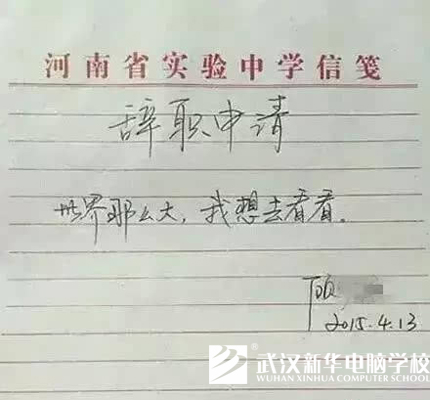 河南省实验中学信笺
辞职申请
世界那么大，我想去看看。
顾
2015.4.13
武汉新华电脑学校
WUHAN XINHUA COMPUTER SCHOOL